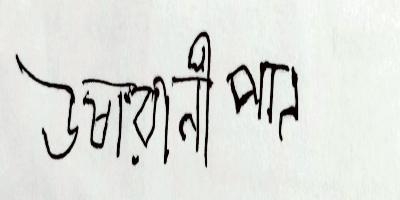 উষারানী পান